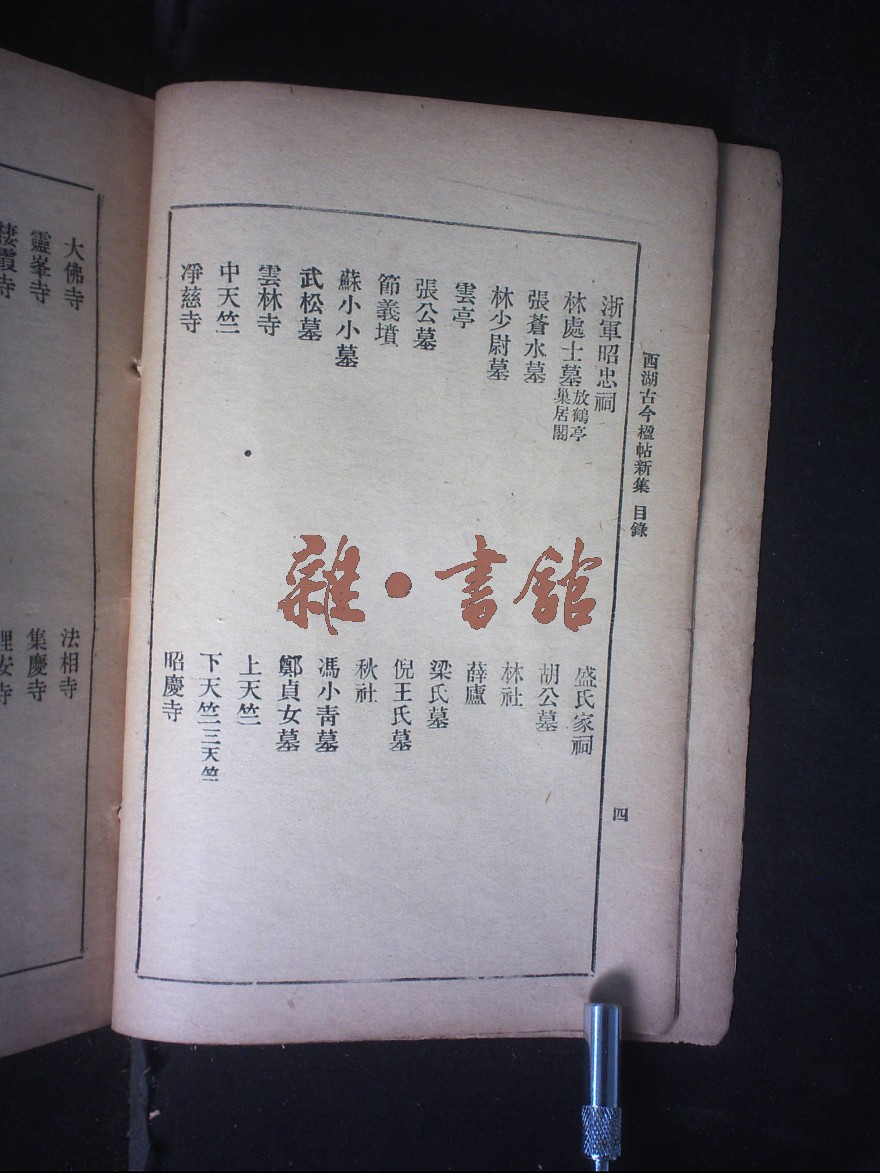 西湖古今楹帖新集 目錄
四
浙軍昭忠祠
盛氏家祠
林處士墓放鶴亭巢居閣
胡公墓
張蒼水墓
林社
林少尉墓
薛廬
雲亭
梁氏墓
張公墓
倪王氏墓
節義墳
秋社
蘇小小墓
馮小靑墓
武松墓
鄭貞女墓
雲林寺
上天竺
中天竺
下天竺三天竺
凈慈寺
昭慶寺
雜·書館
大佛寺
法相寺
靈峯寺
集慶寺
棲霞寺
理安寺